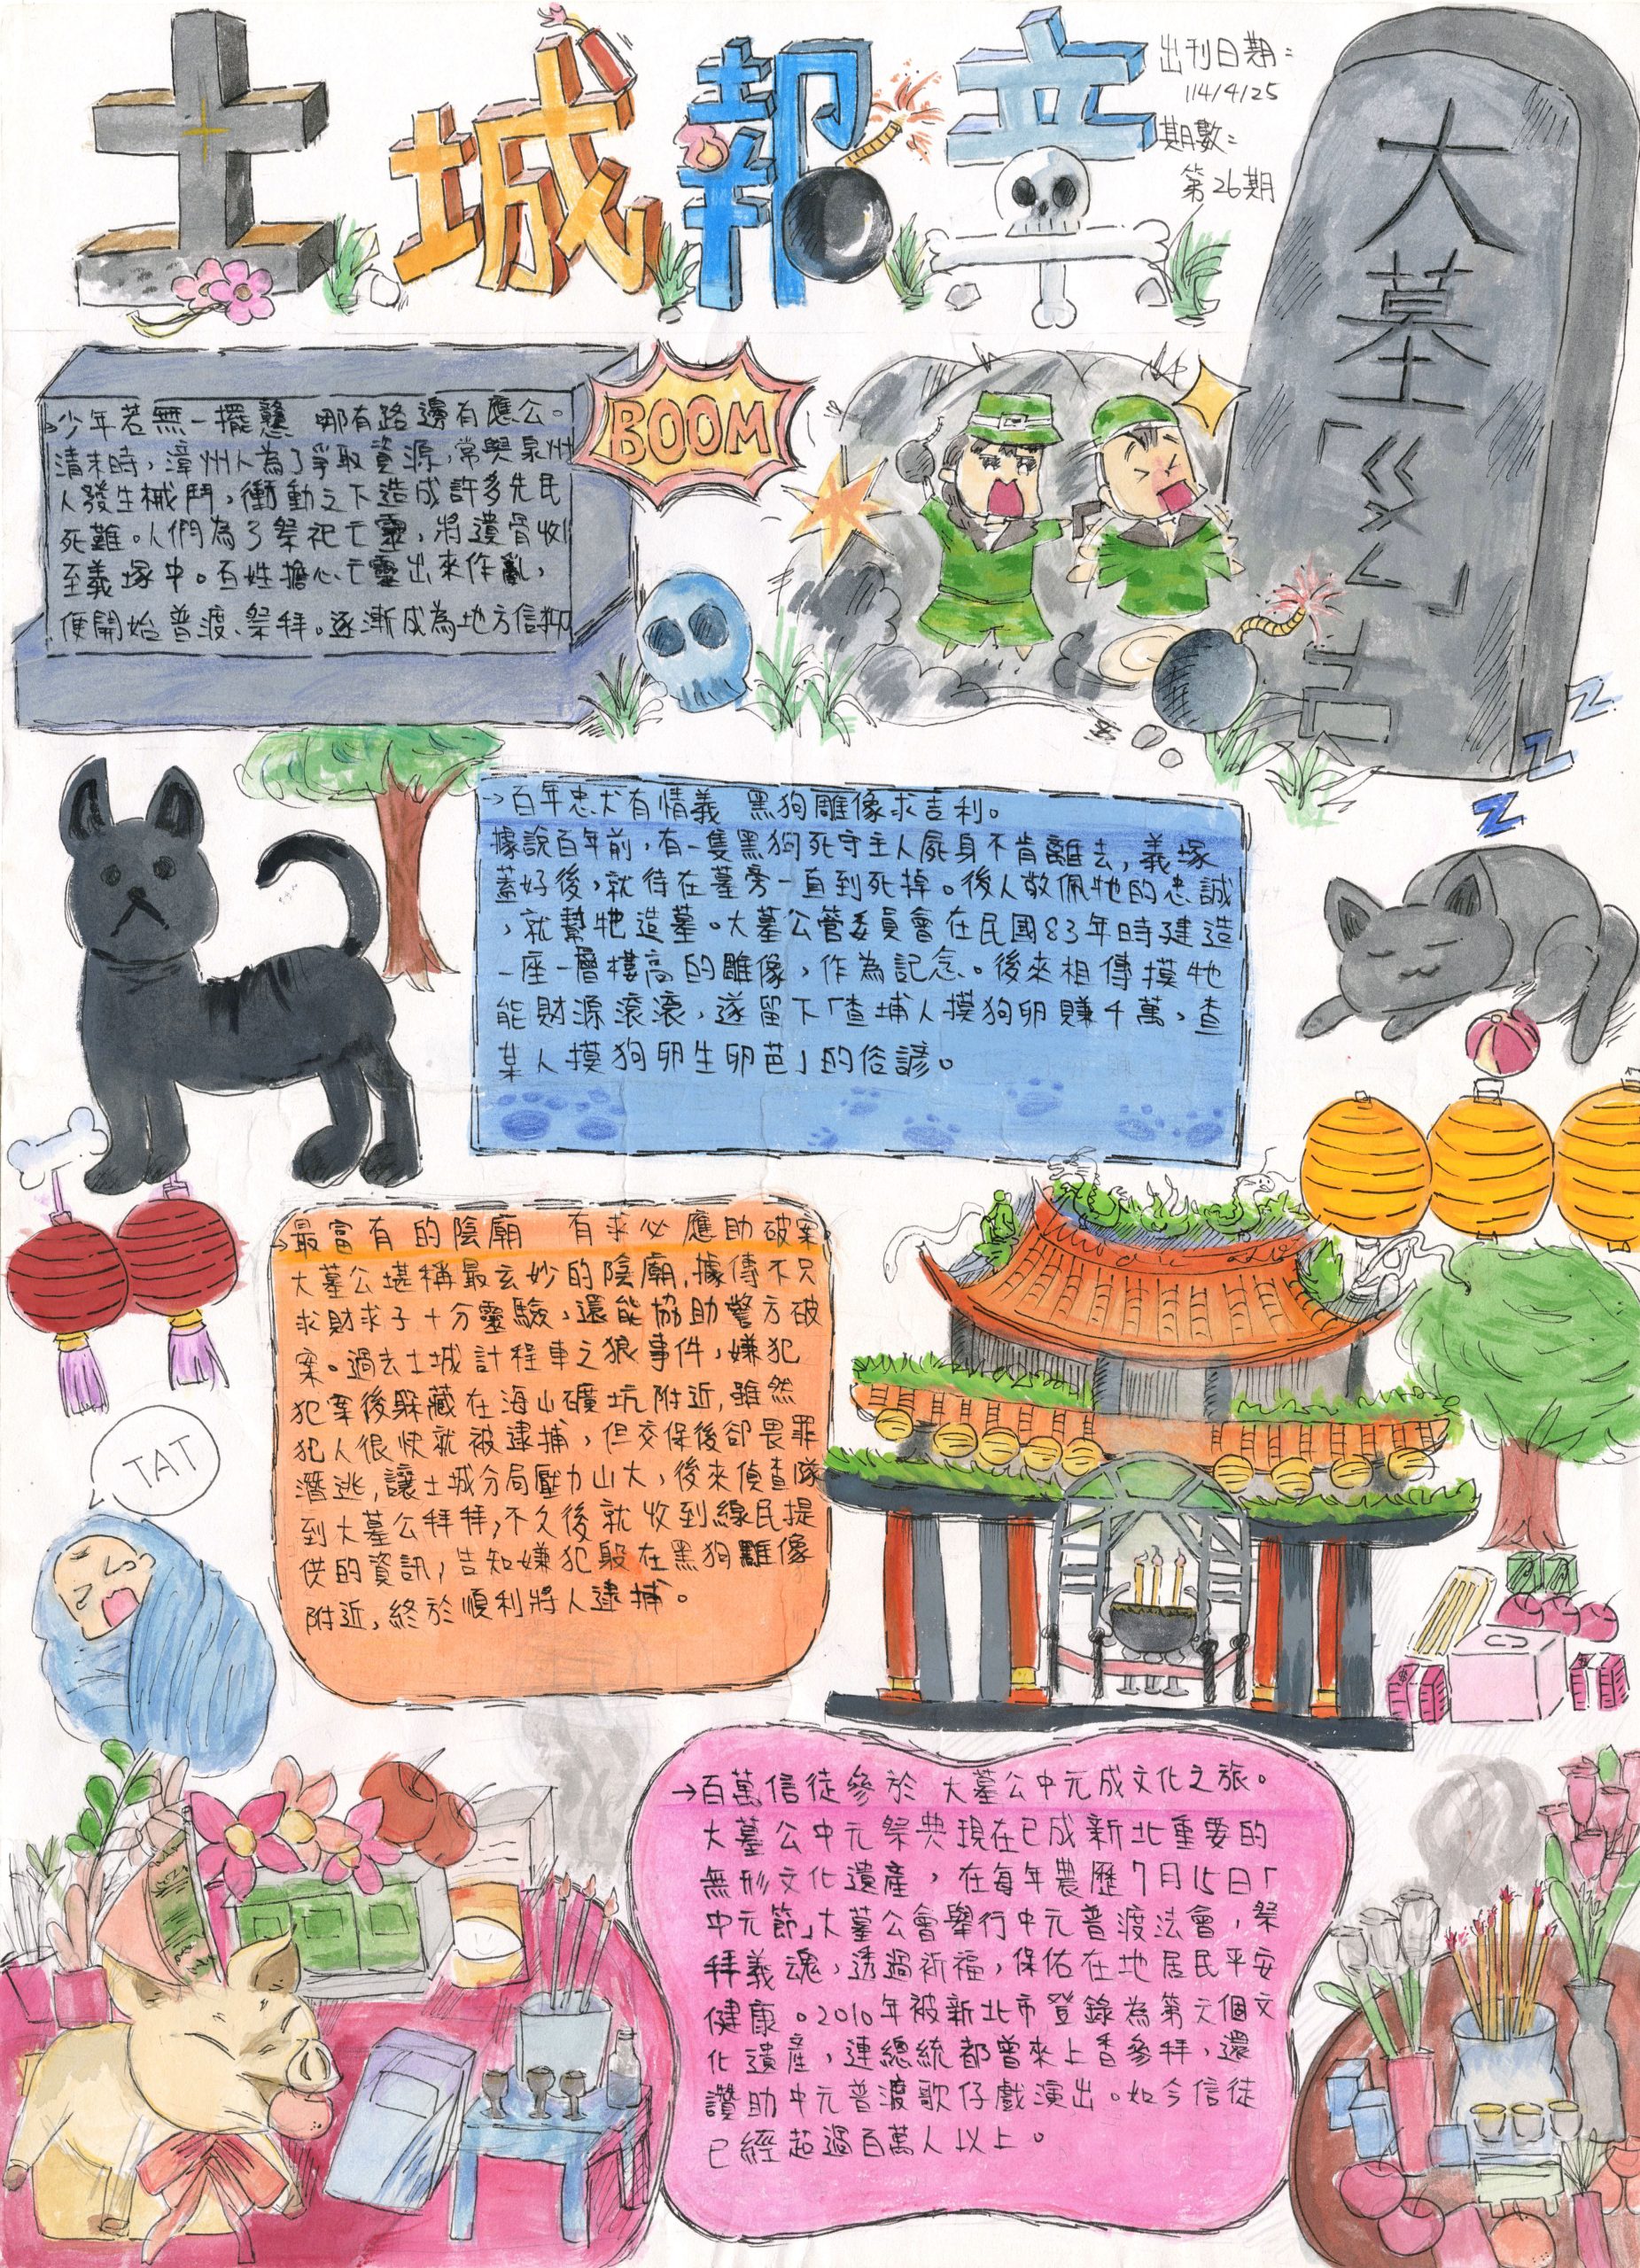 土城幫立
出刊日期：
114/4/25
期數：
第26期
大墓「ㄍㄨㄥ」古
→少年若無一擺戇 哪有路邊有應公。
清末時，漳州人為了爭取資源，常與泉州
人發生械鬥，衝動之下造成許多先民
死難。人們為了祭祀亡靈，將遺骨收
至義塚中。百姓擔心亡靈出來作亂，
便開始普渡、祭拜。逐漸成為地方信仰
BOOM
z
z
z
→百年忠犬有情義 黑狗雕像求吉利。
據說百年前，有一隻黑狗死守主人屍身不肯離去，義塚
蓋好後，就待在墓旁一直到死掉。後人敬佩牠的忠誠
，就幫牠造墓。大墓公管委員會在民國83年時建造
一座一層樓高的雕像，作為記念。後來相傳摸牠
能財源滾滾，遂留下「查埔人摸狗卵賺千萬，查
某人摸狗卵生卵芭」的俗諺。
→最富有的陰廟 有求必應助破案。
大墓公堪稱最玄妙的陰廟，據傳不只
求財求子十分靈驗，還能協助警方破
案。過去土城計程車之狼事件，嫌犯
犯案後躲藏在海山礦坑附近，雖然
犯人很快就被逮捕，但交保後卻畏罪
潛逃，讓土城分局壓力山大，後來偵查隊
到大墓公拜拜，不久後就收到線民提
供的資訊，告知嫌犯躲在黑狗雕像
附近，終於順利將人逮捕。
TAT
→百萬信徒參於 大墓公中元成文化之旅。
大墓公中元祭典現在已成新北重要的
無形文化遺產，在每年農歷7月15日「
中元節」大墓公會舉行中元普渡法會，祭
拜義魂，透過祈福，保佑在地居民平安
健康。2010年被新北市登錄為第六個文
化遺產，連總統都曾來上香參拜，還
讚助中元普渡歌仔戲演出。如今信徒
已經超過百萬人以上。